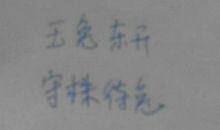 王兔东开
守株待兔